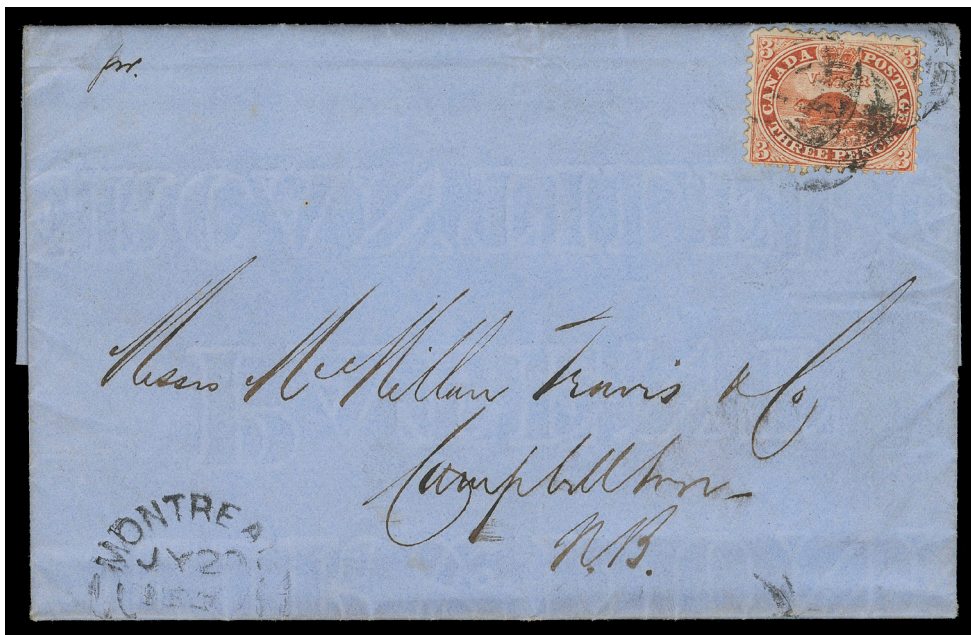 pr.
3 3
CANADA POSTAGE
THREE PENCE
3 3
Messrs McMillan Travis & Co
Campbellton
N.B.
MONTREA
JY 29